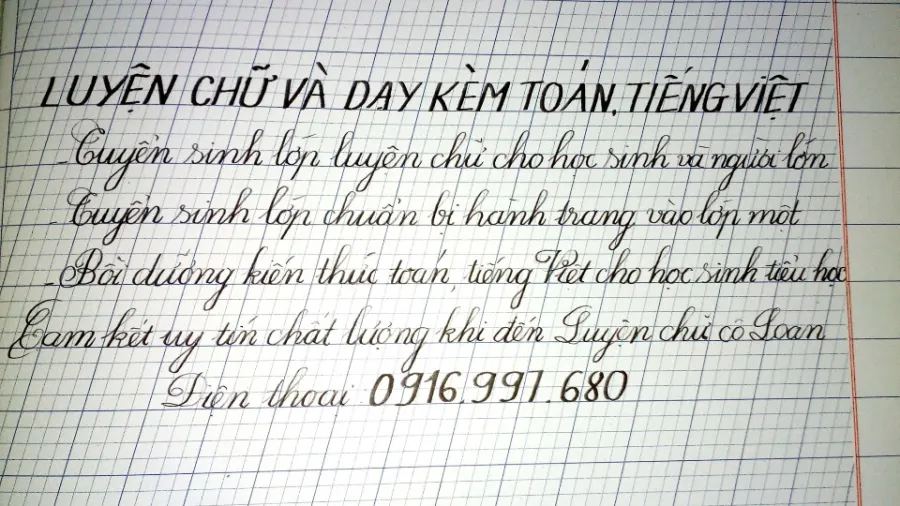 LUYỆN CHỮ VÀ DẠY KÈM TOÁN, TIẾNG VIỆT
- Tuyển sinh lớp luyện chữ cho học sinh và người lớn
- Tuyển sinh lớp chuẩn bị hành trang vào lớp một
- Bồi dưỡng kiến thức toán, tiếng Việt cho học sinh tiểu học
Cam kết uy tín chất lượng khi đến Luyện chữ cô Loan
Điện thoại 0916.997.680